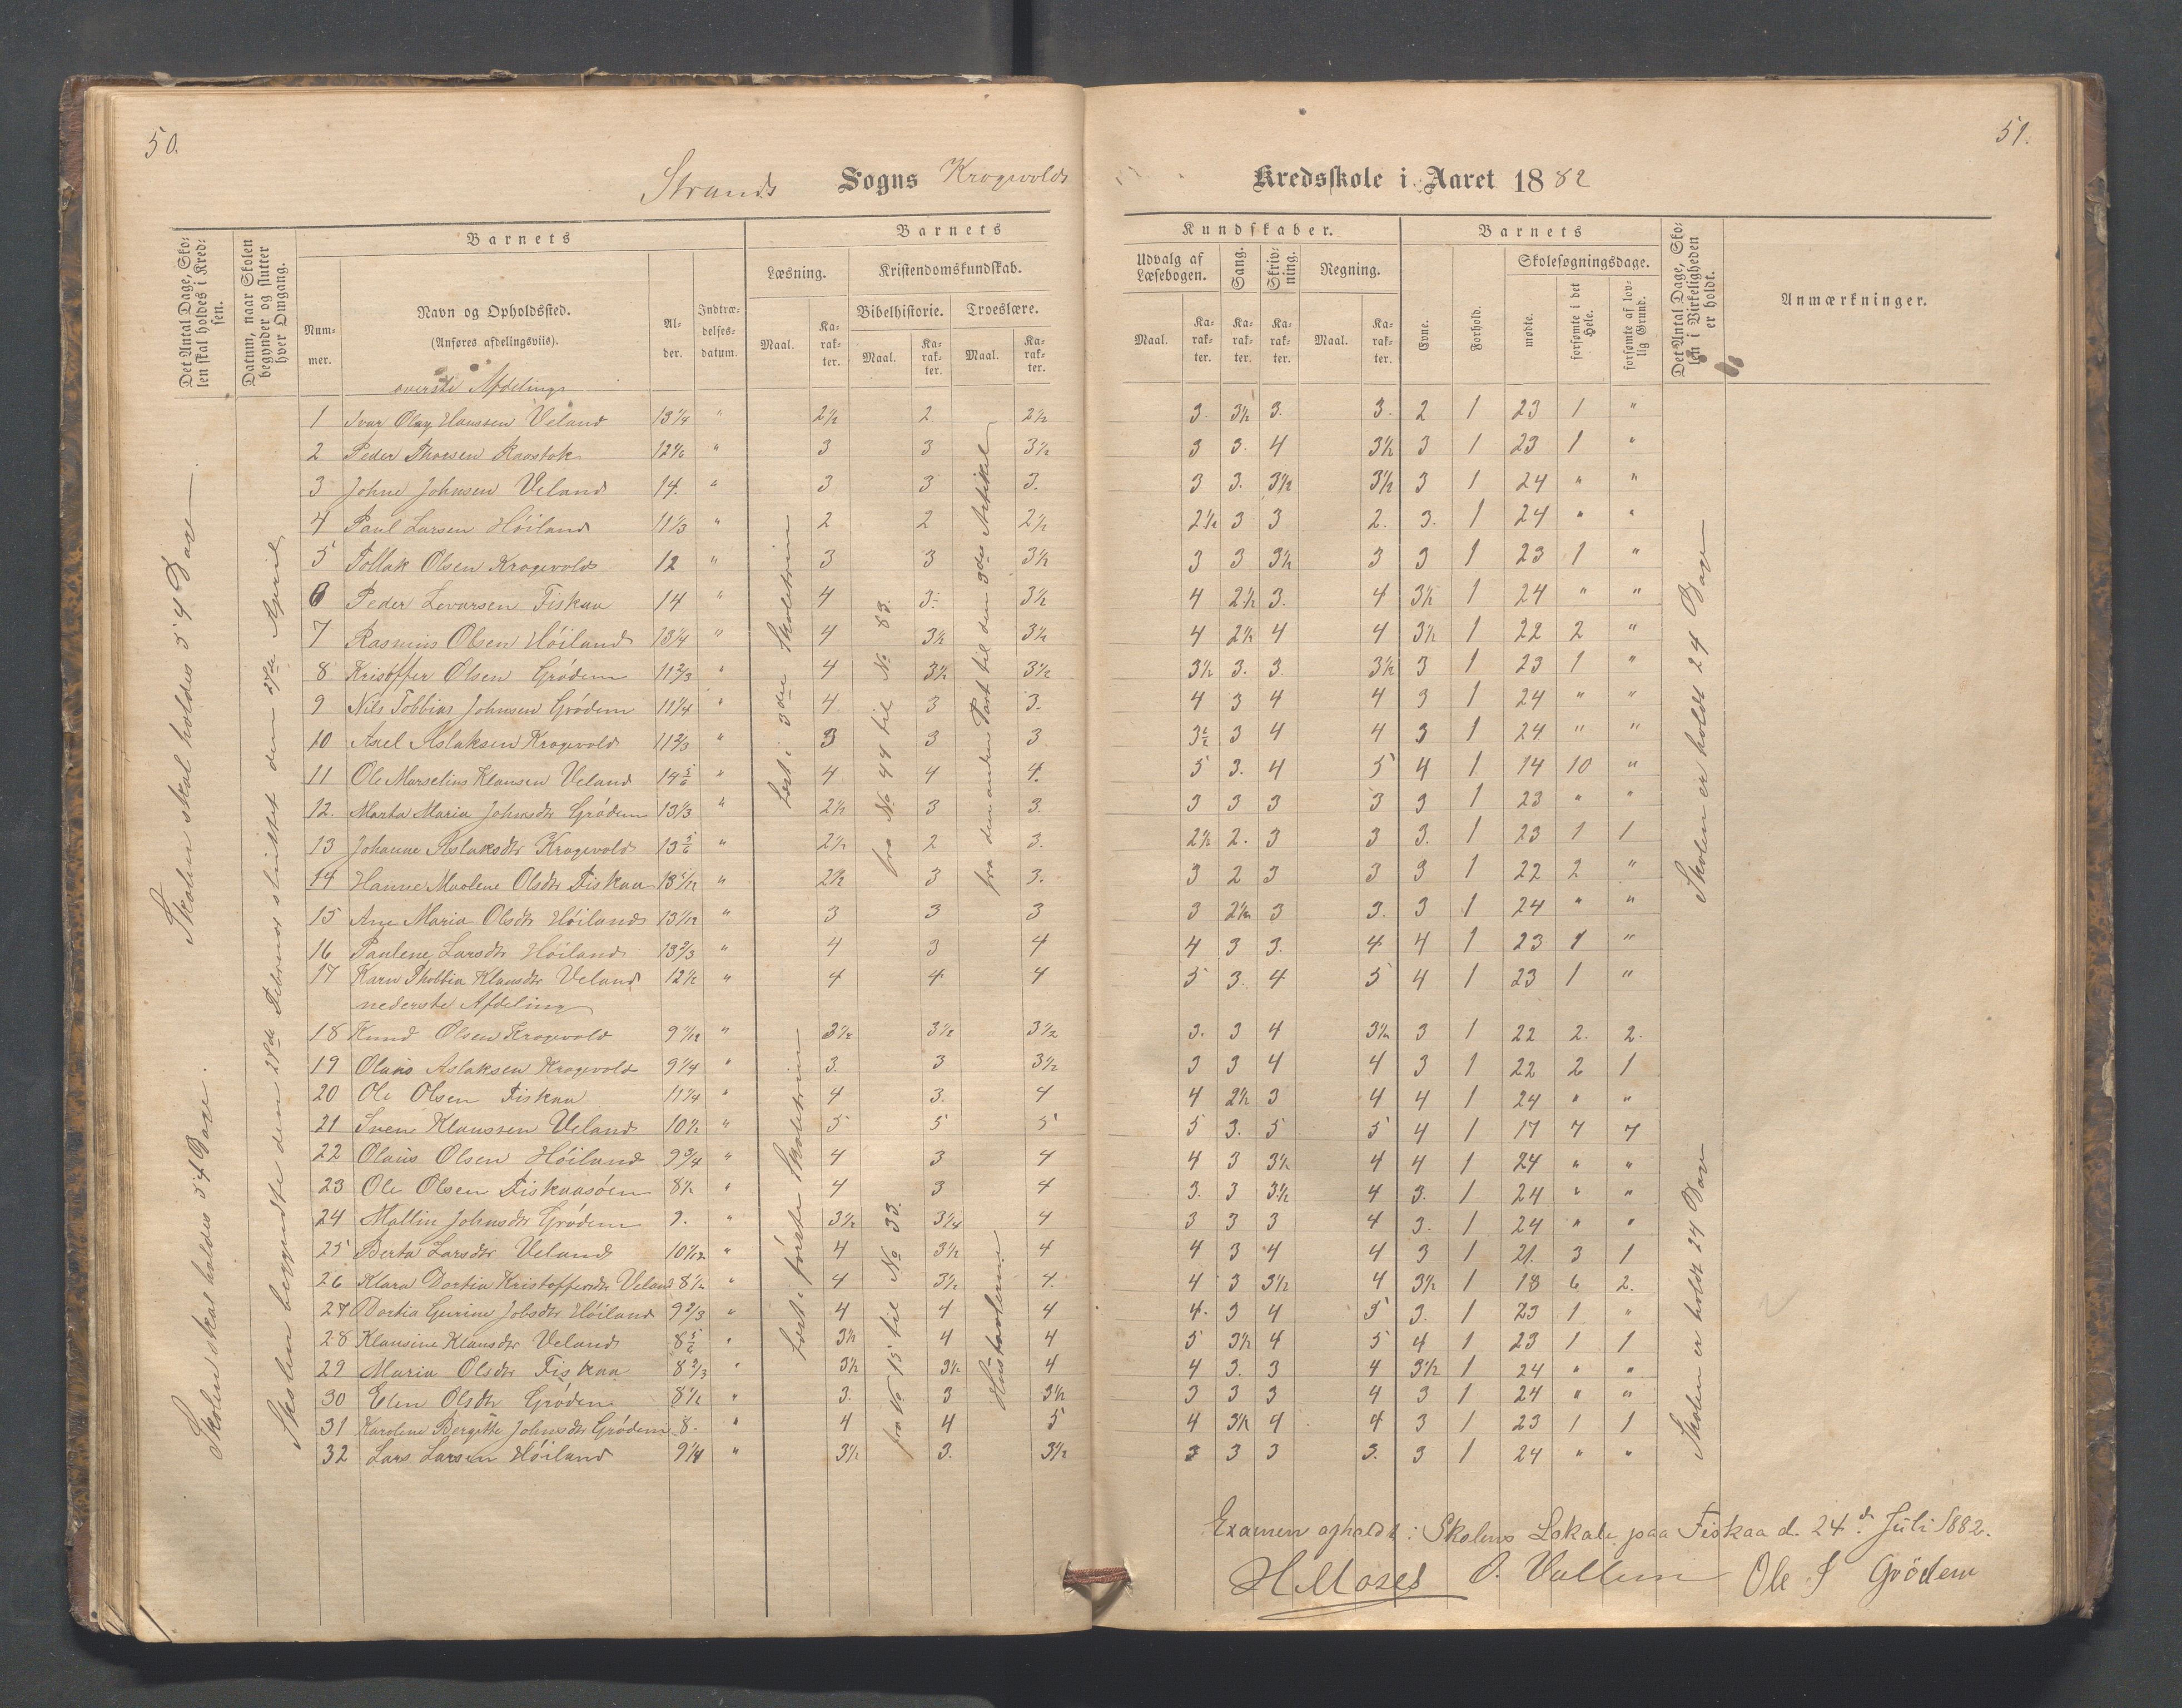 50.
51.
Strands Sogns Krogevolds Kredsskole i Aaret 1882
Det Antal Dage, Skolen skal holdes i Kredsen.
Datum, naar Skolen begynder og slutter hver Omgang.
Barnets
Nummer.
Navn og Opholdssted.
(Anføres afdelingsviis).
Alder.
Indtrædelsesdatum.
Barnets
Læsning.
Kristendomskundskab.
Bibelhistorie. Troeslære.
Maal. Karakter. Maal. Karakter. Maal. Karakter.
Kundskaber.
Udvalg af Læsebogen.
Sang.
Skrivning.
Regning.
Maal. Karakter. Karakter. Karakter. Maal. Karakter.
Barnets
Evne.
Forhold.
Skolesøgningsdage.
mødte.
forsømte i det Hele.
forsømte af lovlig Grund.
Det Antal Dage, Skolen i Virkeligheden er holdt.
Anmærkninger.
øverste Afdeling
1 Ivar Olay Hanssen Veland 13 1/4 " 2 1/2 2 2 1/2 3. 3 1/2 3. 3. 2 1 23 1 "
2 Peder Thorsen Ravstok " 3 3 3 1/2 3 3. 4 3 1/2 3 1 23 1 "
3 Johne Johnsen Veland 14. " 3 3 3. 3 3. 3 1/2 3 1/2 3 1 24 " "
4 Paul Larsen Høiland 11 1/3 " 2 2 2 1/2 2 1/2 3 3 2. 3. 1 24 " "
5 Tollak Olsen Krogevold 12 " 3 3 3 1/2 3 3 3 1/2 3 3 1 23 1 "
6 Peder Levarsen Fiskaa 14 " 4 3. 3 1/2 4 2 1/2 3. 4 3 1/2 1 24 " "
7 Rasmus Olsen Høiland 13 1/4 " 4 3 1/2 3 1/2 4 2 1/2 4 4 3 1/2 1 22 2 "
8 Kristoffer Olsen Grødem 11 2/3 " 4 3 1/2 3 1/2 3 1/2 3. 3. 3 1/2 3 1 23 1 "
9 Nils Tobbias Johnsen Grødem 11 1/4 " 4 3 3. 4 3 4 4 3 1 24 " "
10 Axel Aslaksen Krogevold 11 2/3 " 3 3 3 3 1/2 3 4 4 3 1 24 " "
11 Ole Marselius Klausen Veland 14 5/6 " 4 4 4. 5 3. 4 5 4 1 14 10 "
12. Marta Maria Johnsdtr Grødem 13 1/3 " 2 1/2 3 3. 3 3 3 3 3 1 23 " "
13 Johanne Aslaksdtr Krogevold 13 5/6 " 2 1/2 2 3. 2 1/2 2. 3 3 3. 1 23 1 1
14 Hanne Maolene Olsdtr Fiskaa " 2 1/2 3 3. 3 2 3 3 3 1 22 2 "
15 Ane Maria Olsdtr Høiland 13 1/12 " 3 3 3 3 2 1/2 3 3. 3 1 24 " "
16 Paulene Larsdtr Høiland 13 2/3 " 4 3 4 4 3 3. 4 4 1 23 1 "
17 Karn Thobbia Klausdtr Veland 12 1/2 " 4 4 4 5 3. 4 5 4 1 23 1 "
nederste Afdeling
18 Knud Olsen Krogevold 9 1/12 " 3 1/2 3 1/2 3 1/2 3. 3 4 3 1/2 3 1 22 2. 2.
19 Olaus Aslaksen Krogevold 9 1/4 " 3. 3 3 1/2 3 3 4 4 3 1 22 2 1
20 Ole Olsen Fiskaa 11 1/4 " 4 3. 4 4 2 1/2 3 4 4 1 24 " "
21 Svein Klaussen Veland 10 1/2 " 5 5 5 5 3. 5 5 4 1 17 7 7
22 Olaus Olsen Høiland 9 3/4 " 4 3 4 4 3 3 1/2 4 4 1 24 " "
23 Ole Olsen Fiskaasøen 8 1/2 " 4 3 4 3. 3 3 1/2 4 3. 1 24 " "
24 Mallin Johnsdtr Grødem 9. " 3 1/2 3 1/4 4 3 3 3 4 3. 1 24 " "
25 Berta Larsdtr Veland " 4 3 1/2 4 4 3 4 4 3 1 21. 3 1
26 Klara Dortia Kristoffersdtr Veland 8 1/2 " 4 3 1/2 4. 4 3 3 1/2 4 3 1/2 1 18 6 2.
27 Dortia Gurine Jobsdtr Høiland 9 2/3 " 4 4 4 4. 3 4 5 3. 1 23 1 "
28 Klausine Klausdtr Veland 8 5/6 " 3 1/2 4 4 5 3 1/2 4 5 4 1 23 1 1
29 Maria Olsdtr Fiskaa 8 2/3 " 3 1/2 3 1/2 4 4 3. 3 4 3 1/2 1 24 " "
30 Elen Olsdtr Grødem 8 1/2 " 3. 3 3 1/2 3 3 3 4 3 1 24 " "
31 Karoline Bergitte Johnsdtr Grødem 8. " 4 4 5 4 3 1/2 4 4 3 1 23 1 1
32 Lars Larsen Høiland 9 1/4 " 3 1/2 3. 3 1/2 3 3 3 3. 3 1 24 " "
Skolen skal holdes 54 Dage
Skolen skal holdes 54 Dage.
Skolen begyndte den 28de Februar sluttet den 27de April
Læst i 3die Skoletrin
fra No 44 til No 83.
fra den anden Part til den 3die Artikel
Læst i første Skoletrin
fra No 15 til No 33.
Hustavlerne
Skolen er holdt 24 Dage
Skolen er holdt 24 Dage
Examen apholdt i Skolens Lokale paa Fiskaa d. 24de Juli 1882.
H Moses O. Vallem Ole J Grödem